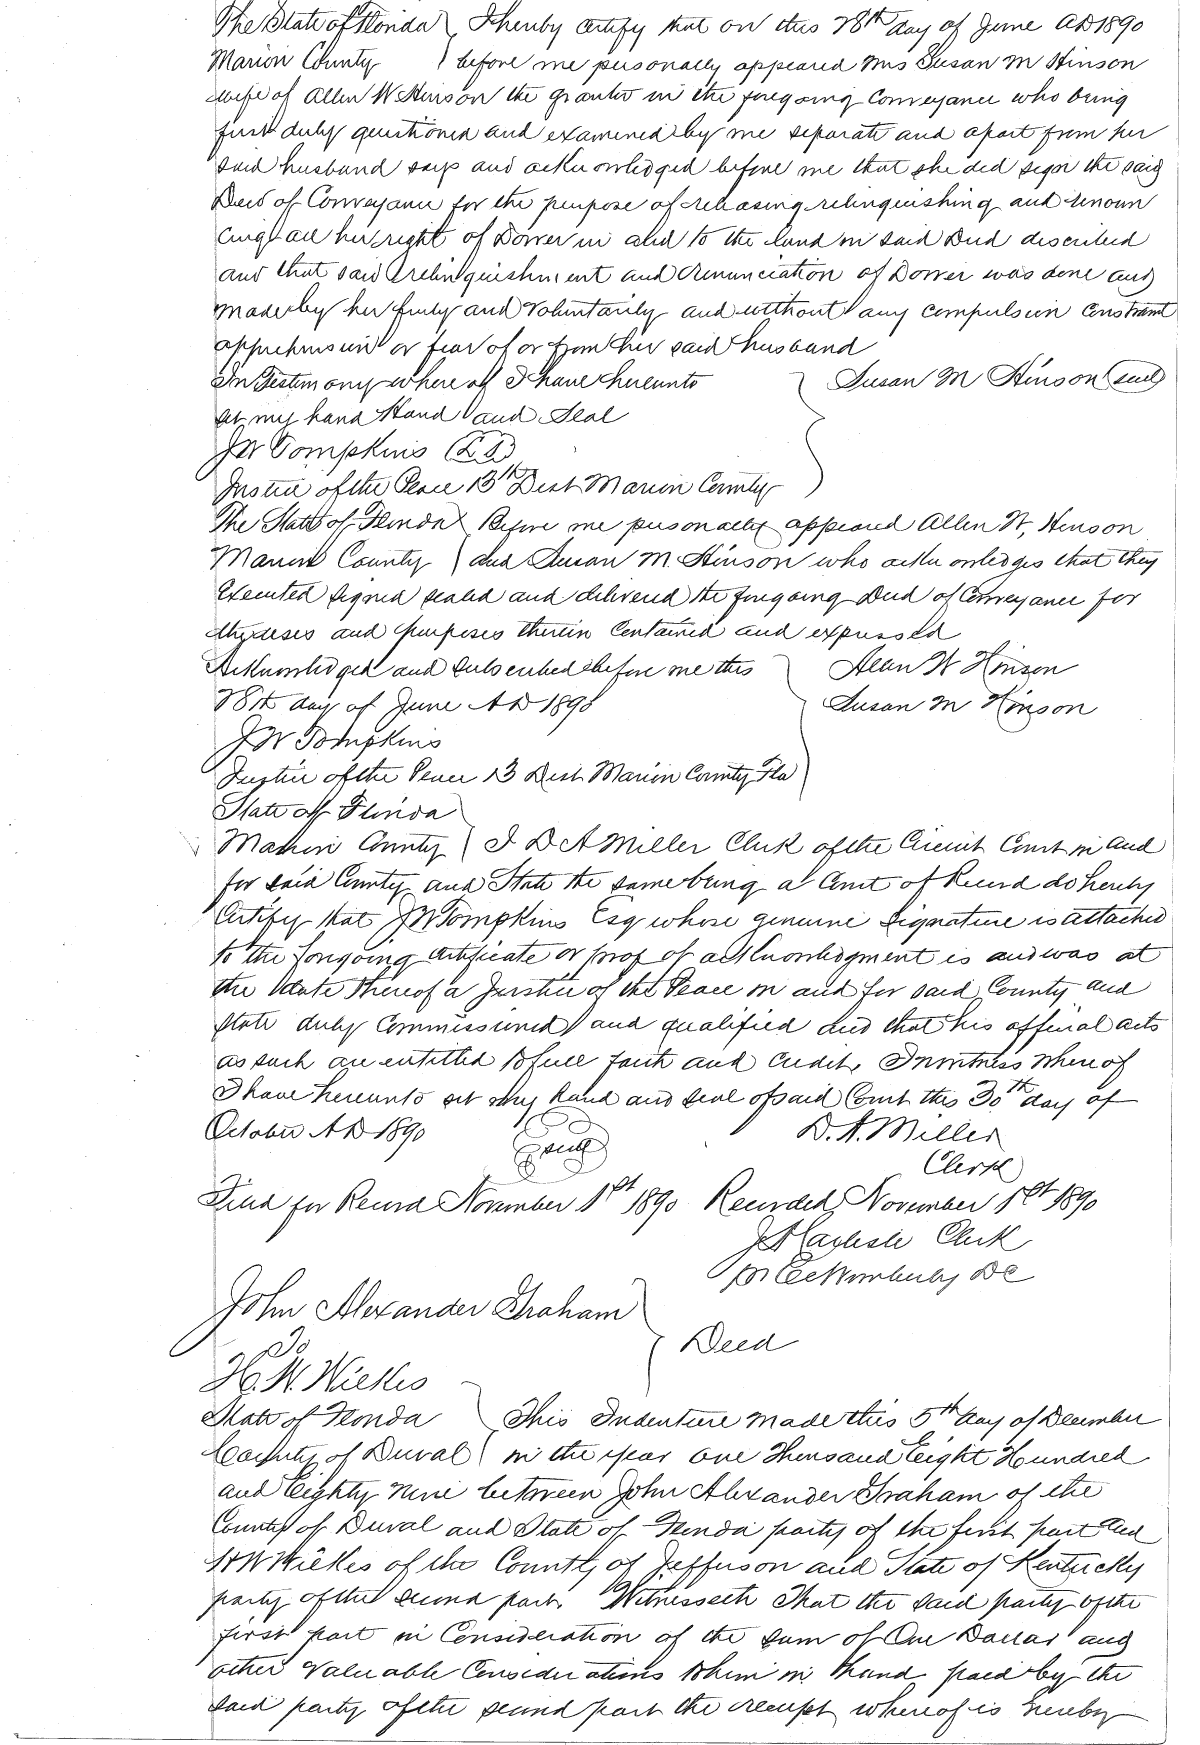 The State of Florida } I hereby certify that on this 28th day of June AD 1890
Marion County } before me personally appeared Mrs Susan M Hinson
wife of Allen W Hinson the grantor in the foregoing Conveyance who being
first duly questioned and examined by me separate and apart from her
said husband says and acknowledged before me that she did sign the said
Deed of Conveyance for the purpose of releasing relinquishing and renoun
cing all her right of Dower in and to the land in said Deed described
and that said relinquishment and renunciation of Dower was done and
made by her freely and voluntarily and without any compulsion constraint
apprehension or fear of or from her said husband
In Testimony where of I have hereunto } Susan M Hinson (seal)
set my hand Hand and Seal
JW Tompkins (LS)
Justice of the Peace 13th Dist Marion County
The State of Florida } Before me personally appeared Allen W, Hinson
Marion County } and Susan M. Hinson who acknowledges that they
Executed signed sealed and delivered the foregoing Deed of Conveyance for
the uses and purposes therein Contained and expressed
Acknowledged and subscribed before me this } Allen W Hinson
28th day of June AD 1890 Susan M Hinson
JW Tompkins
Justice of the Peace 13 Dist Marion County Fla
State of Florida }
Marion County } I D A Miller Clerk of the Circuit Court in and
for said County and State the same being a Court of Record do hereby
Certify that JW Tompkins Esq whose genuine signature is attached
to the foregoing certificate or proof of acknowledgment is and was at
the date thereof a Justice of the Peace in and for said County and
State duly Commissioned and qualified and that his official acts
as such are entitled to full faith and credit, In witness where of
I have hereunto set my hand and seal of said Court this 30th day of
October AD 1890 (seal) D. A. Miller
Clerk
Filed for Record November 1st 1890 Recorded November 1st 1890
Carlisle Clerk
DC
John Alexander Graham }
To } Deed
H. W. Wilkes
State of Florida } This Indenture made this 5th day of December
County of Duval } in the year one Thousand Eight Hundred
and Eighty nine between John Alexander Graham of the
County of Duval and State of Florida party of the first part and
HW Wilkes of the County of Jefferson and State of Kentucky
party of the second part. Witnesseth That the said party of the
first part in Consideration of the sum of One Dollar and
other valuable Considerations to him in hand paid by the
said party of the second part the receipt whereof is hereby